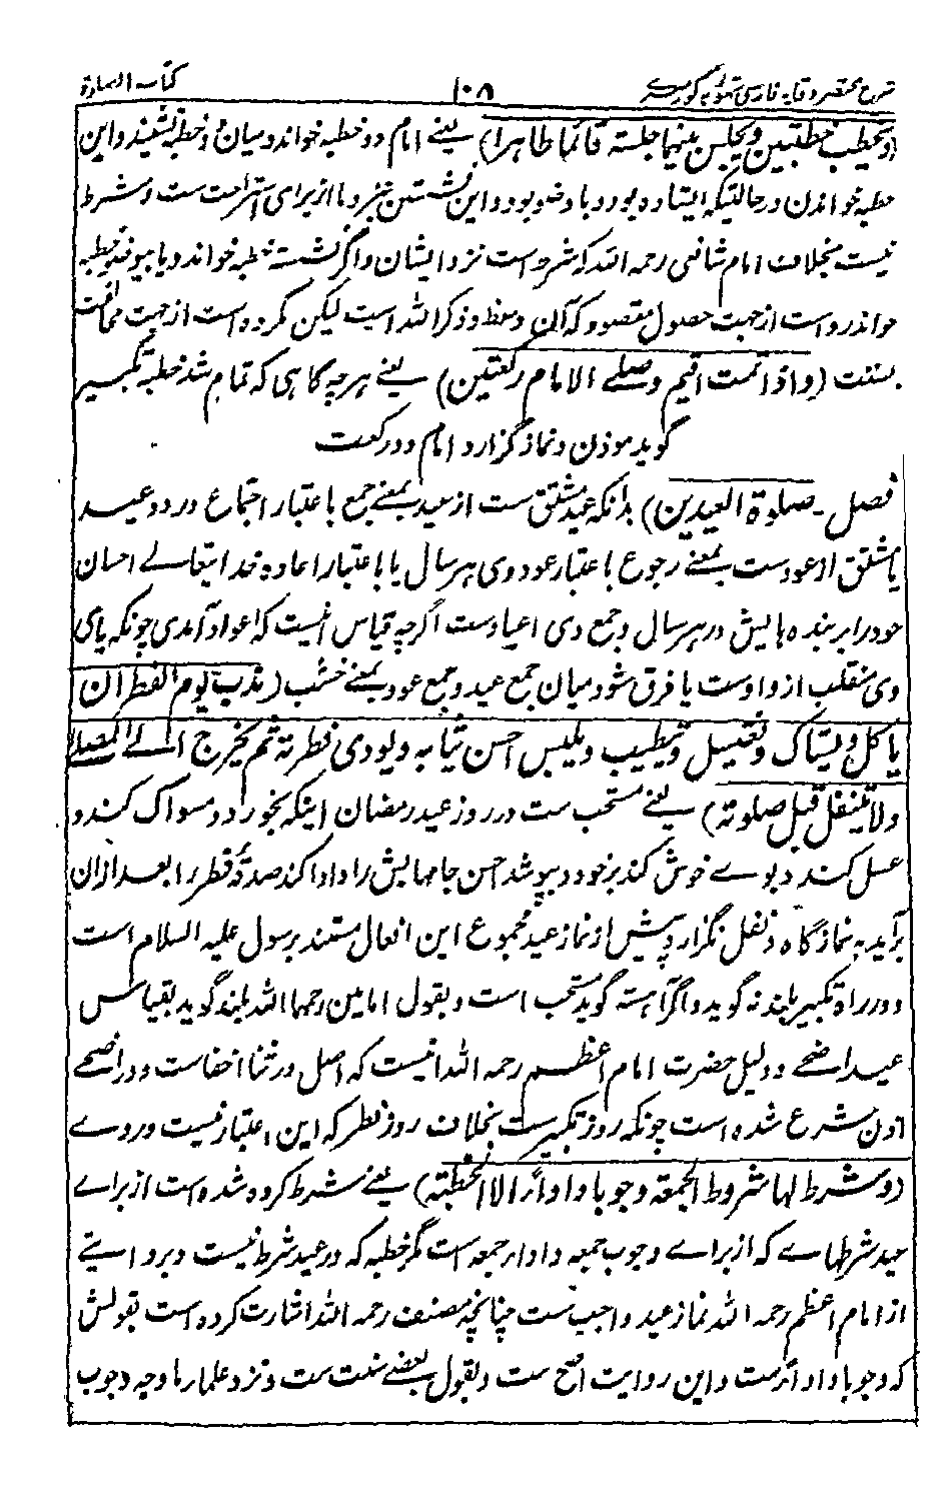 شرح مختصر وقایه فارسی
۱۰۸
کتاب الصلوة
(و یخطب خطبتین و یجلس بینهما جلسة قائما طاهرا) یعنے امام دو خطبه خواند و میان دو خطبه نشیند و این
خطبه خواندن در حالتیکه ایستاده بود و با وضو بود و این نشستن نزد ما از برای استراحت ست و شرط
نیست بخلاف امام شافعی رحمه الله که شرط است نزد ایشان و اگر نشسته خطبه خواند و یا بیوضو خطبه
خواند رواست از جهت حصول مقصود که آن وعظ و ذکر الله است لیکن مکروه است از جهت مخالفت
بسنت (و اذا تمت اقیم و صلے الامام رکعتین) یعنے هر چه گاهی که تمام شد خطبه تکبیر
گوید موذن و نماز گزارد امام دو رکعت
فصل - صلوة العیدین) بدانکه عید مشتق ست از عید بمعنے جمع باعتبار اجتماع در دو عید
یا مشتق از عود ست بمعنے رجوع باعتبار عود وی هر سال یا باعتبار اعاده خدا یتعالے احسان
خود را بر بنده هایش در هر سال و جمع وی اعیاد ست اگر چه قیاس اینست که اعواد آمدی چونکه یای
وی منقلب از واو ست یا فرق شود میان جمع عید و جمع عود بمعنے خشب (ندب یوم الفطر ان
یاکل و یستاک و یغتسل و یتطیب و یلبس احسن ثیابه و یودی فطرته ثم یخرج الے المصلے
ولا یتنفل قبل صلوته) یعنے مستحب ست در روز عید رمضان اینکه بخورد و مسواک کند و
غسل کند و بوے خوش کند بر خود و بپوشد احسن جامهایش را و ادا کند صدقهٔ فطر را بعد ازان
برآید به نمازگاه و نفل نگزارد پیش از نماز عید مجموع این افعال مستند برسول علیه السلام است
و در راه تکبیر بلند نه گوید و اگر آهسته گوید مستحب است و بقول امامین رحمهما الله بلند گوید بقیاس
عید اضحے و دلیل حضرت امام اعظم رحمه الله اینست که اصل در ثنا اخفاست و در اضحے
اذن شرع شده است چونکه روز تکبیرست بخلاف روز فطر که این اعتبار نیست در وے
(و شرط لها شروط الجمعة وجوبا و اداء الا الخطبة) یعنے شرط کرده شده است از براے
عید شرطهاے که از براے وجوب جمعه و اداء جمعه است مگر خطبه که در عید شرط نیست و بروایتے
از امام اعظم رحمه الله نماز عید واجب ست چنانچه مصنف رحمه الله اشارت کرده است بقولش
که وجوبا و اداءً ست و این روایت اصح ست و بقول بعضے سنت ست و نزد علماء ما وجه وجوب